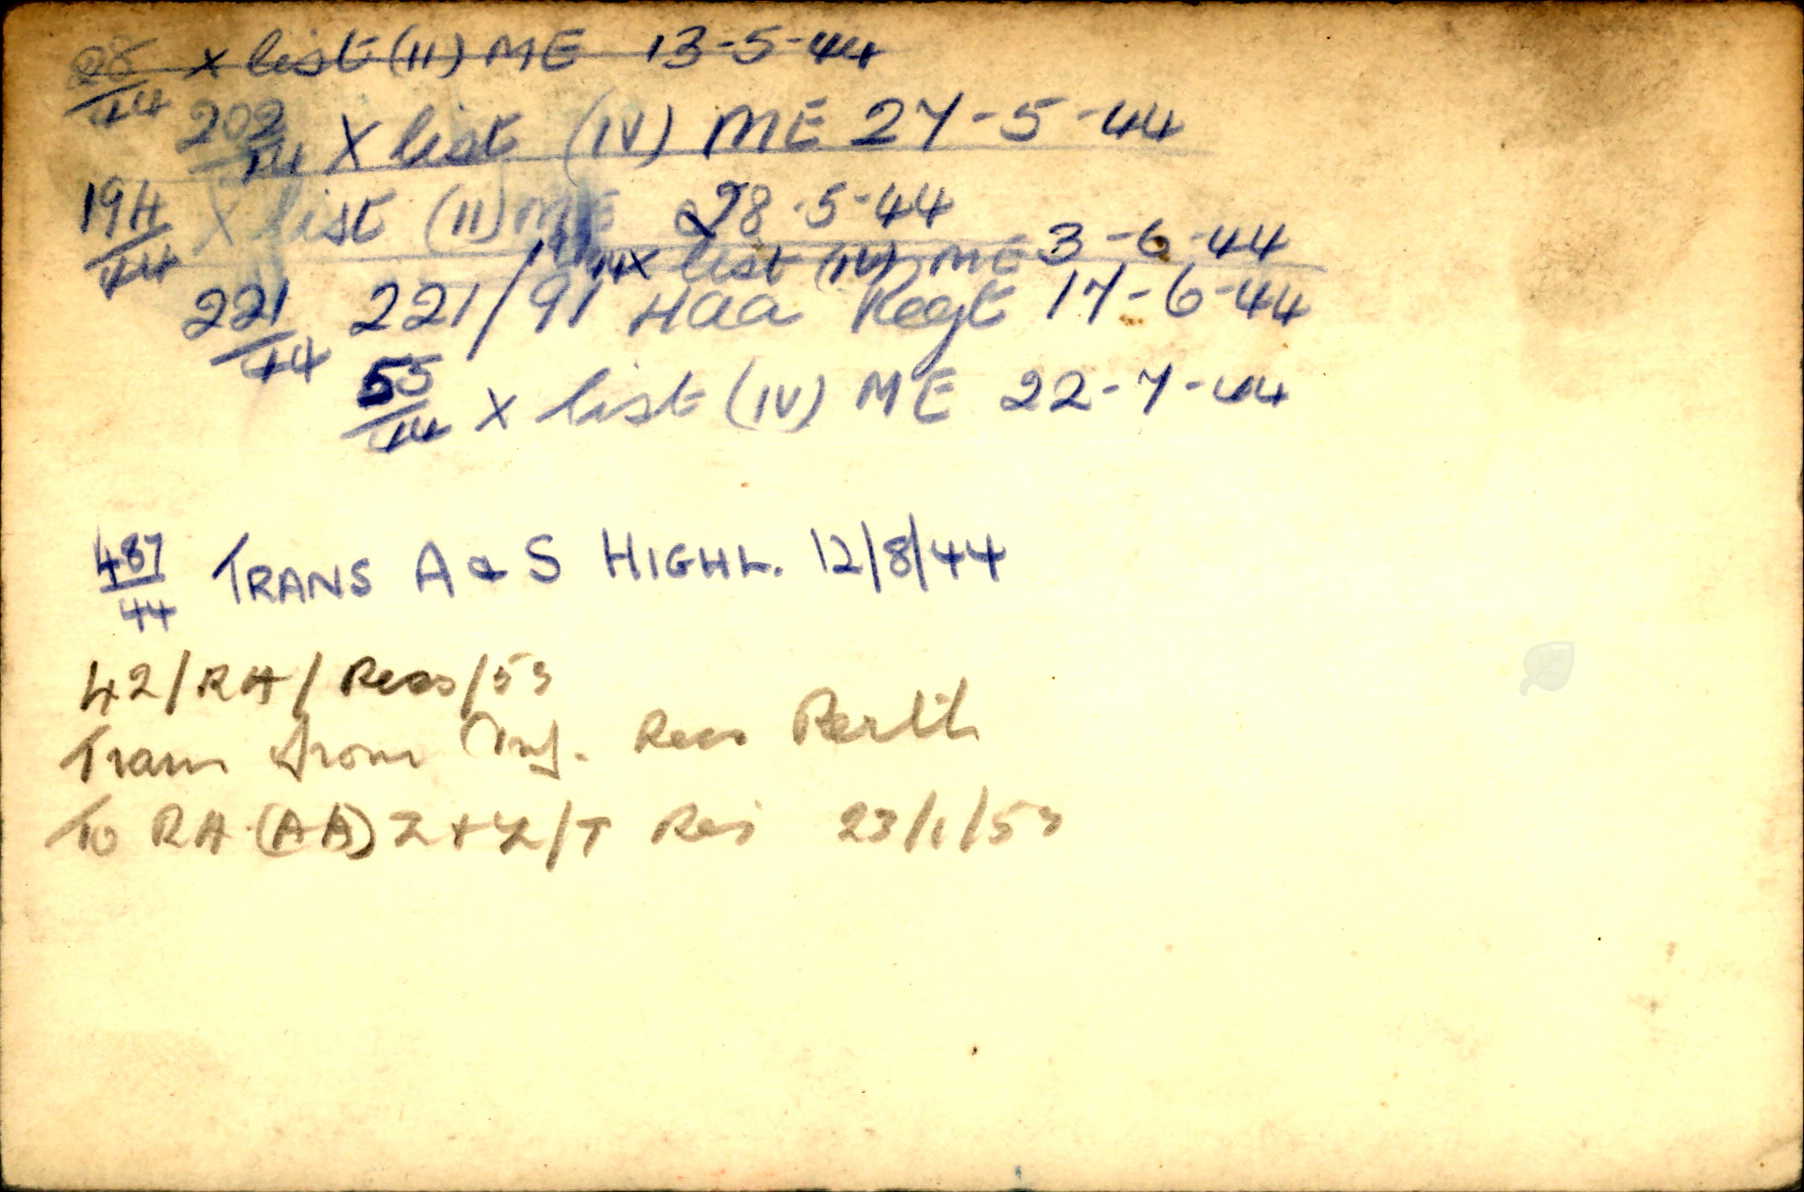 28/44 X list (II) ME 13-5-44
202/44 X list (IV) ME 27-5-44
194/44 X list (II) ME 28-5-44
X list (IV) ME 3-6-44
221/44 221/91 HAA Regt 17-6-44
55/44 X list (IV) ME 22-7-44
487/44 TRANS A & S HIGHL. 12/8/44
42/RA/Recs/53
Trans from Inf. Recs Perth
To RA (AA) Z+Z/T Res 23/1/53